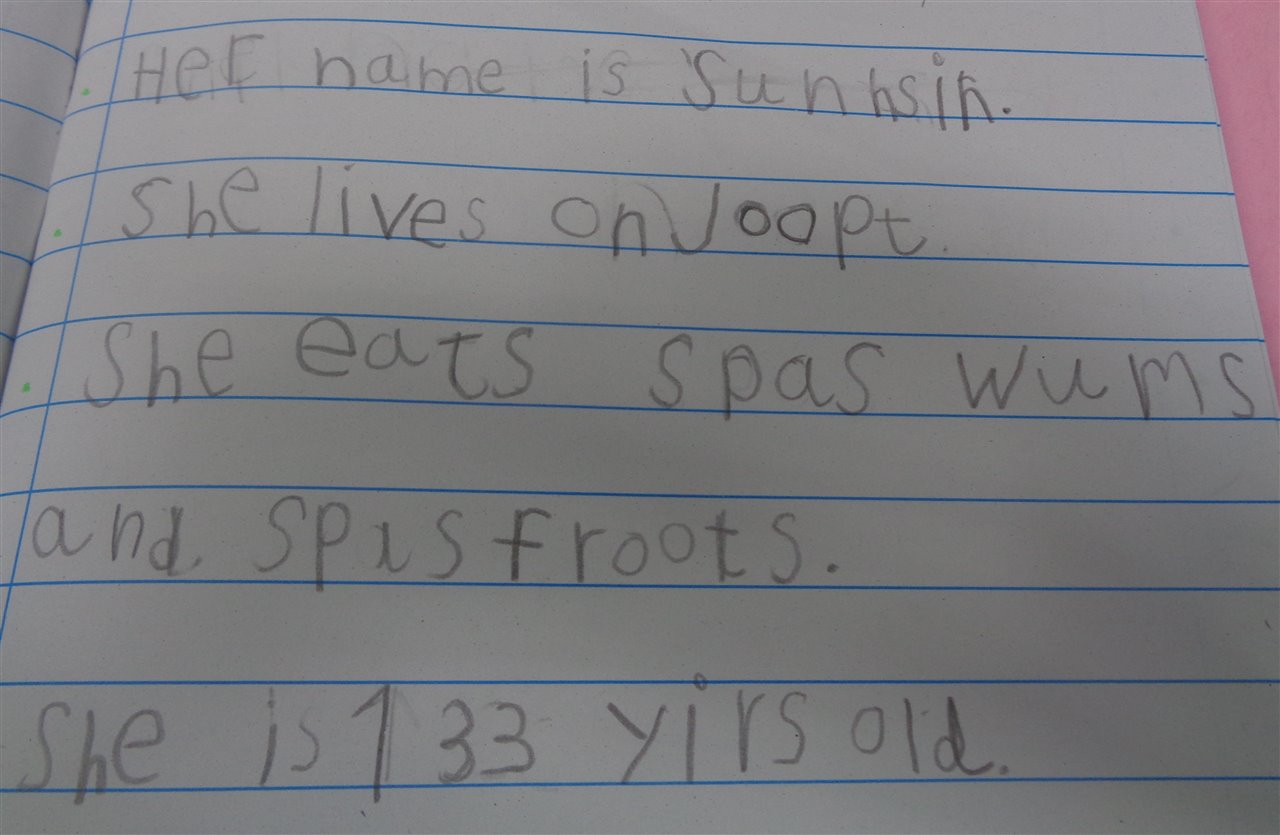 Her name is Sunhsin.
She lives on Joopt.
She eats spas wums
and spis froots.
She is 133 yirs old.